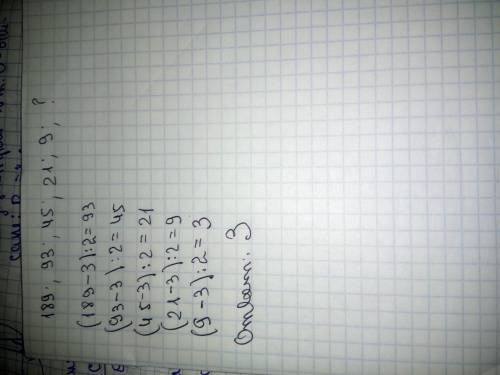 189; 93; 45; 21; 9; ?
(189-3):2=93
(93-3):2=45
(45-3):2=21
(21-3):2=9
(9-3):2=3
Ответ: 3